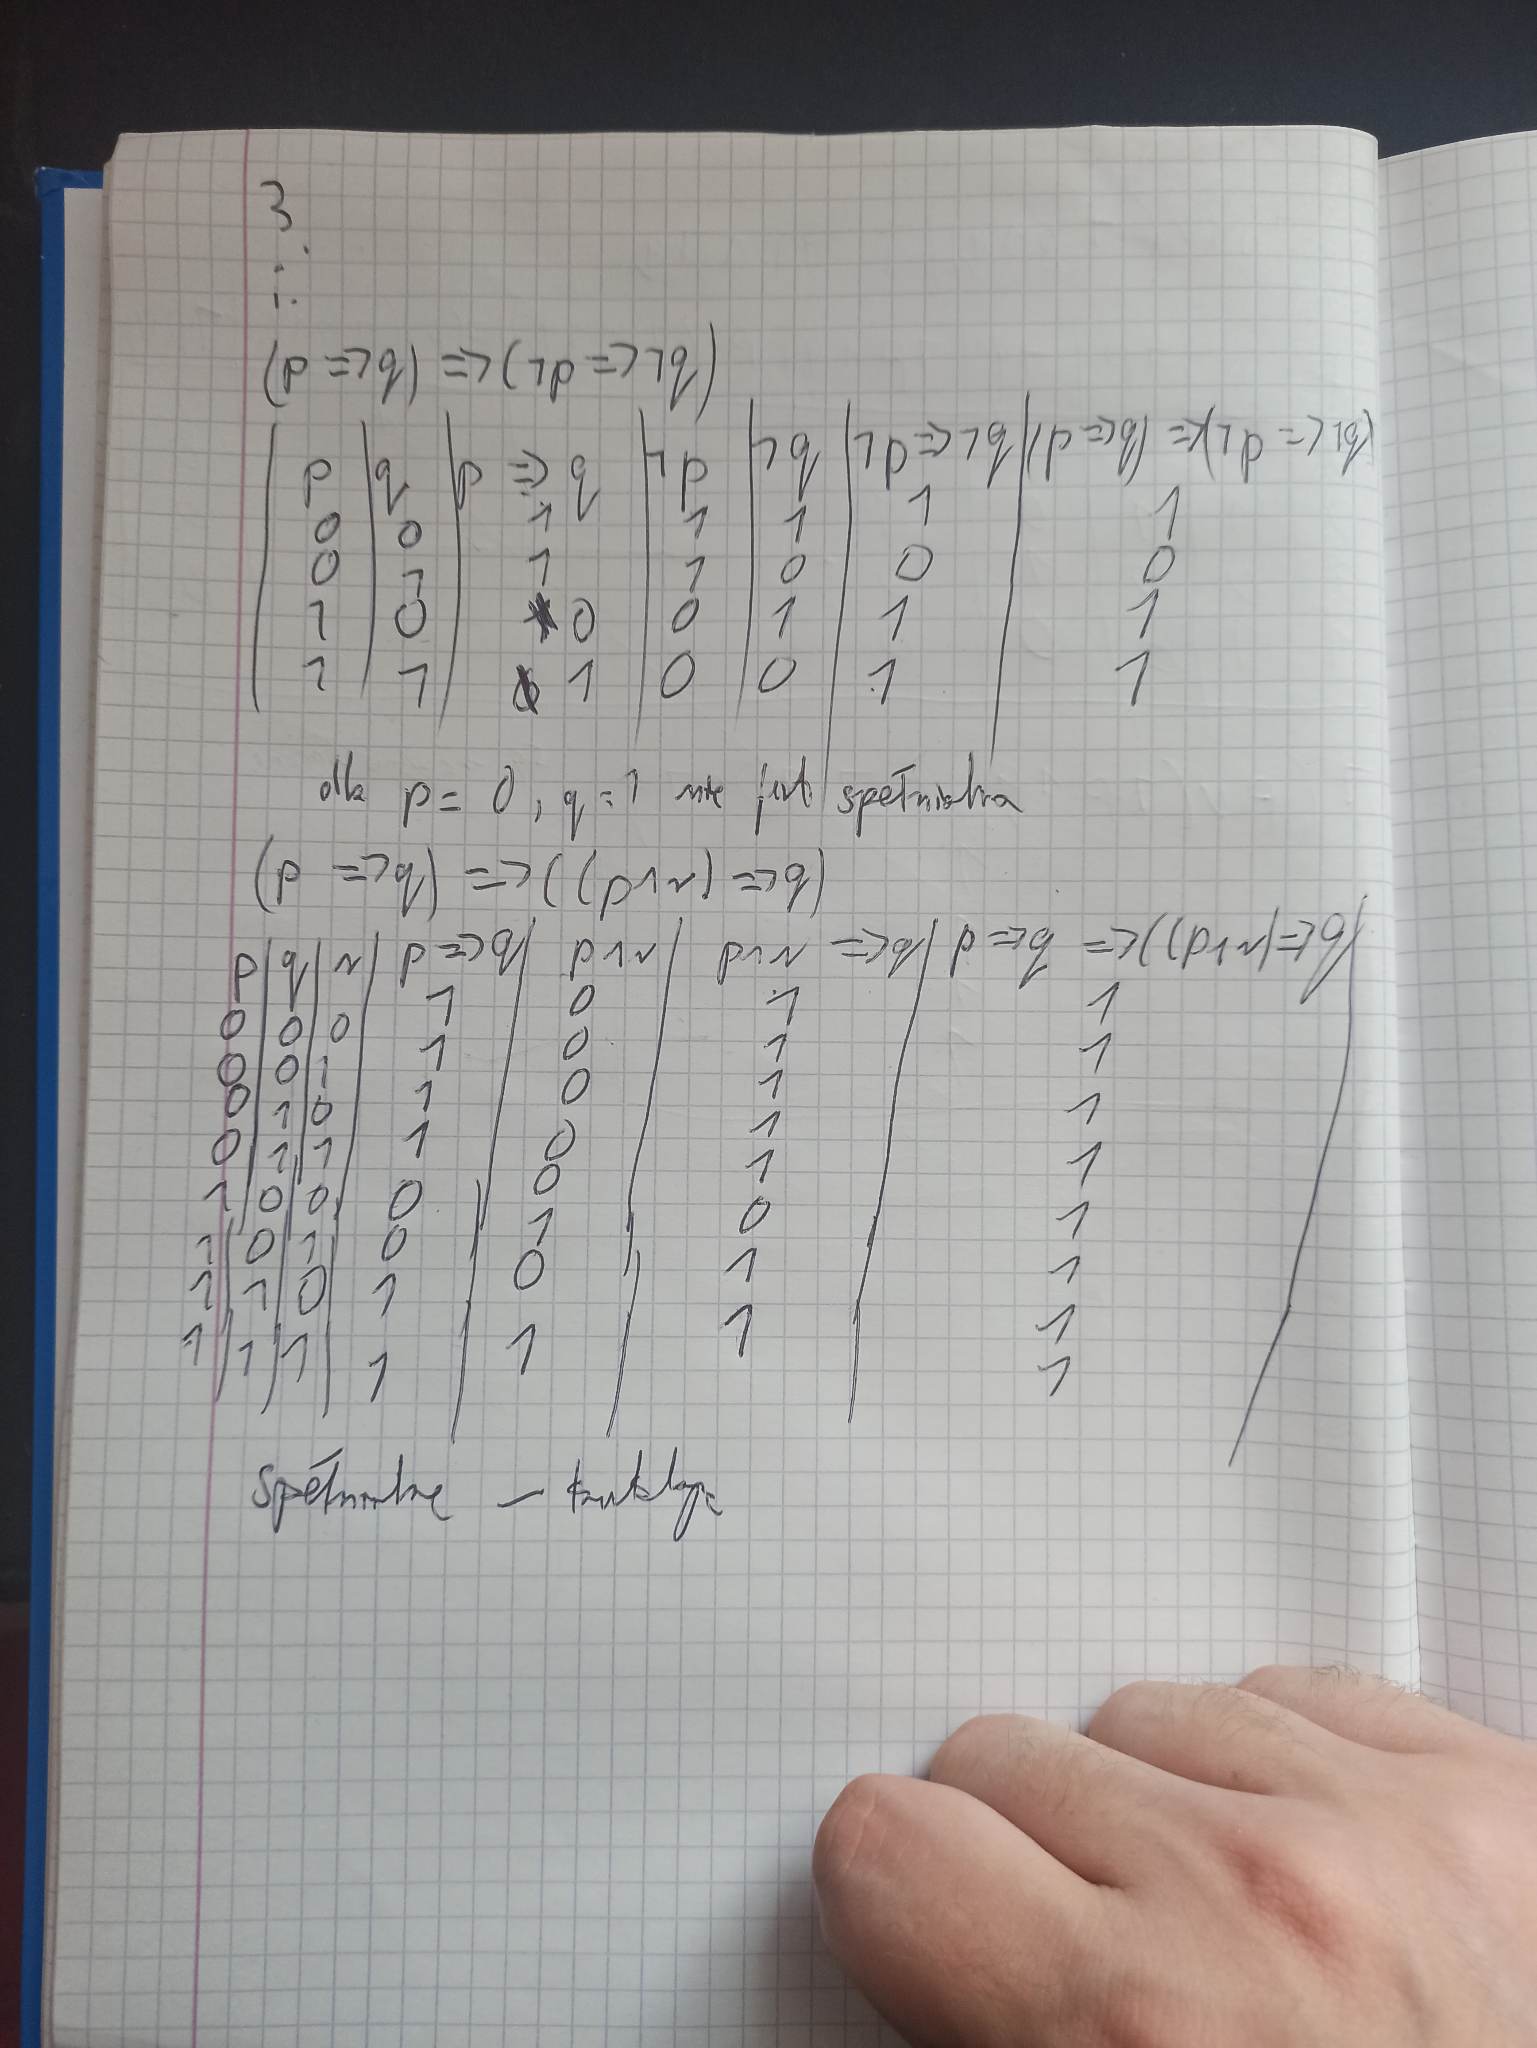 3.
i.
(p => q) => (¬p => ¬q)
p | q | p => q | ¬p | ¬q | ¬p => ¬q | (p => q) => (¬p => ¬q)
0 0 1 1 1 1 1
0 1 1 1 0 0 0
1 0 0 0 1 1 1
1 1 1 0 0 1 1
dla p = 0, q = 1 nie jest spełnialna
(p => q) => ((p ∧ r) => q)
p | q | r | p => q | p ∧ r | p ∧ r => q | p => q => ((p ∧ r) => q
0 0 0 1 0 1 1
0 0 1 1 0 1 1
0 1 0 1 0 1 1
0 1 1 1 0 1 1
1 0 0 0 0 1 1
1 0 1 0 1 0 1
1 1 0 1 0 1 1
1 1 1 1 1 1 1
spełnialne –